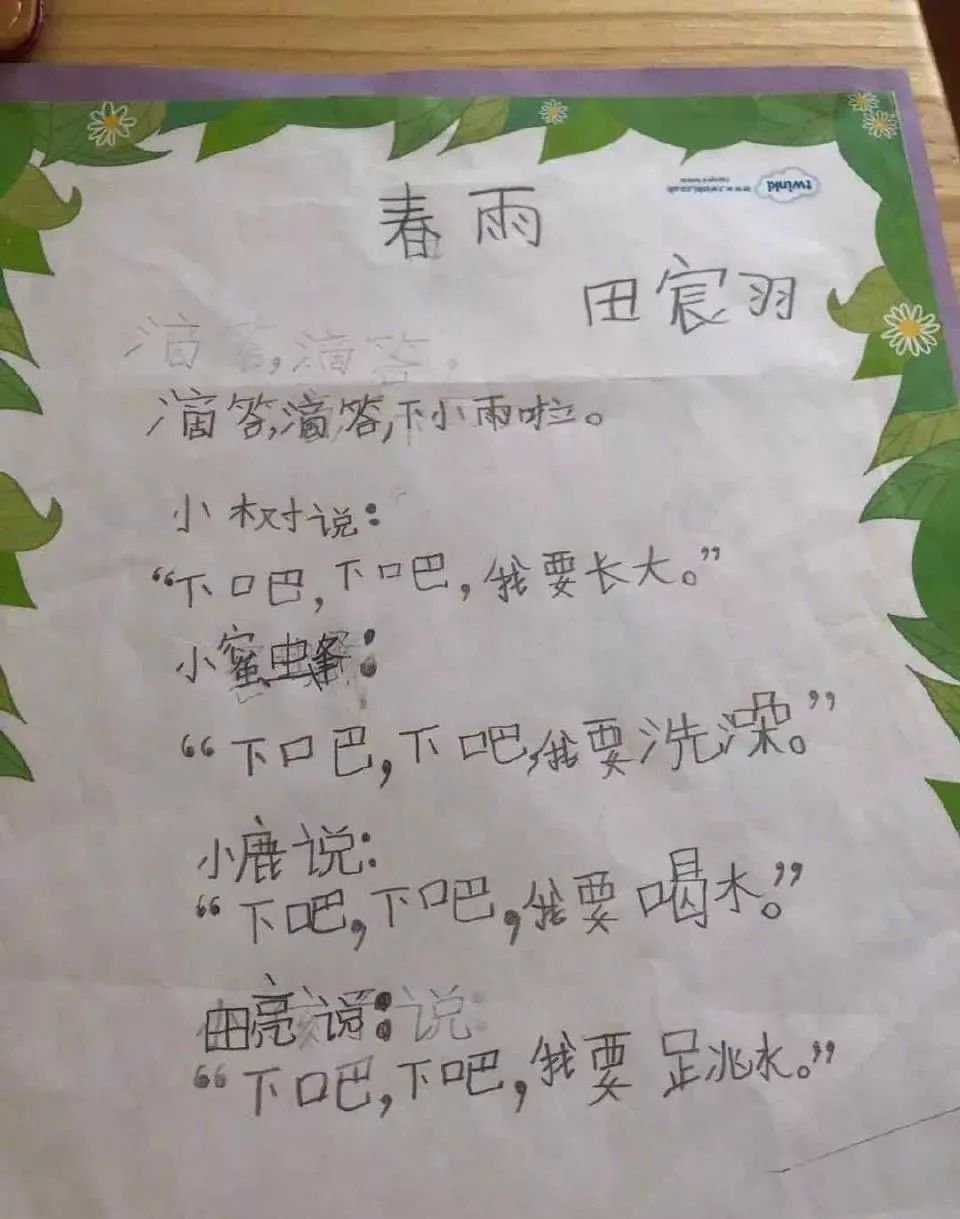 春雨
twinkl
www.twinkl.co.uk
田宸羽
滴答,滴答,
滴答,滴答,下小雨啦。
小树说:
“下吧,下吧,我要长大。”
小蜜蜂:
“下吧,下吧,我要洗澡。”
小鹿说:
“下吧,下吧,我要喝水。”
田亮说:说:
“下吧,下吧,我要跳水。”